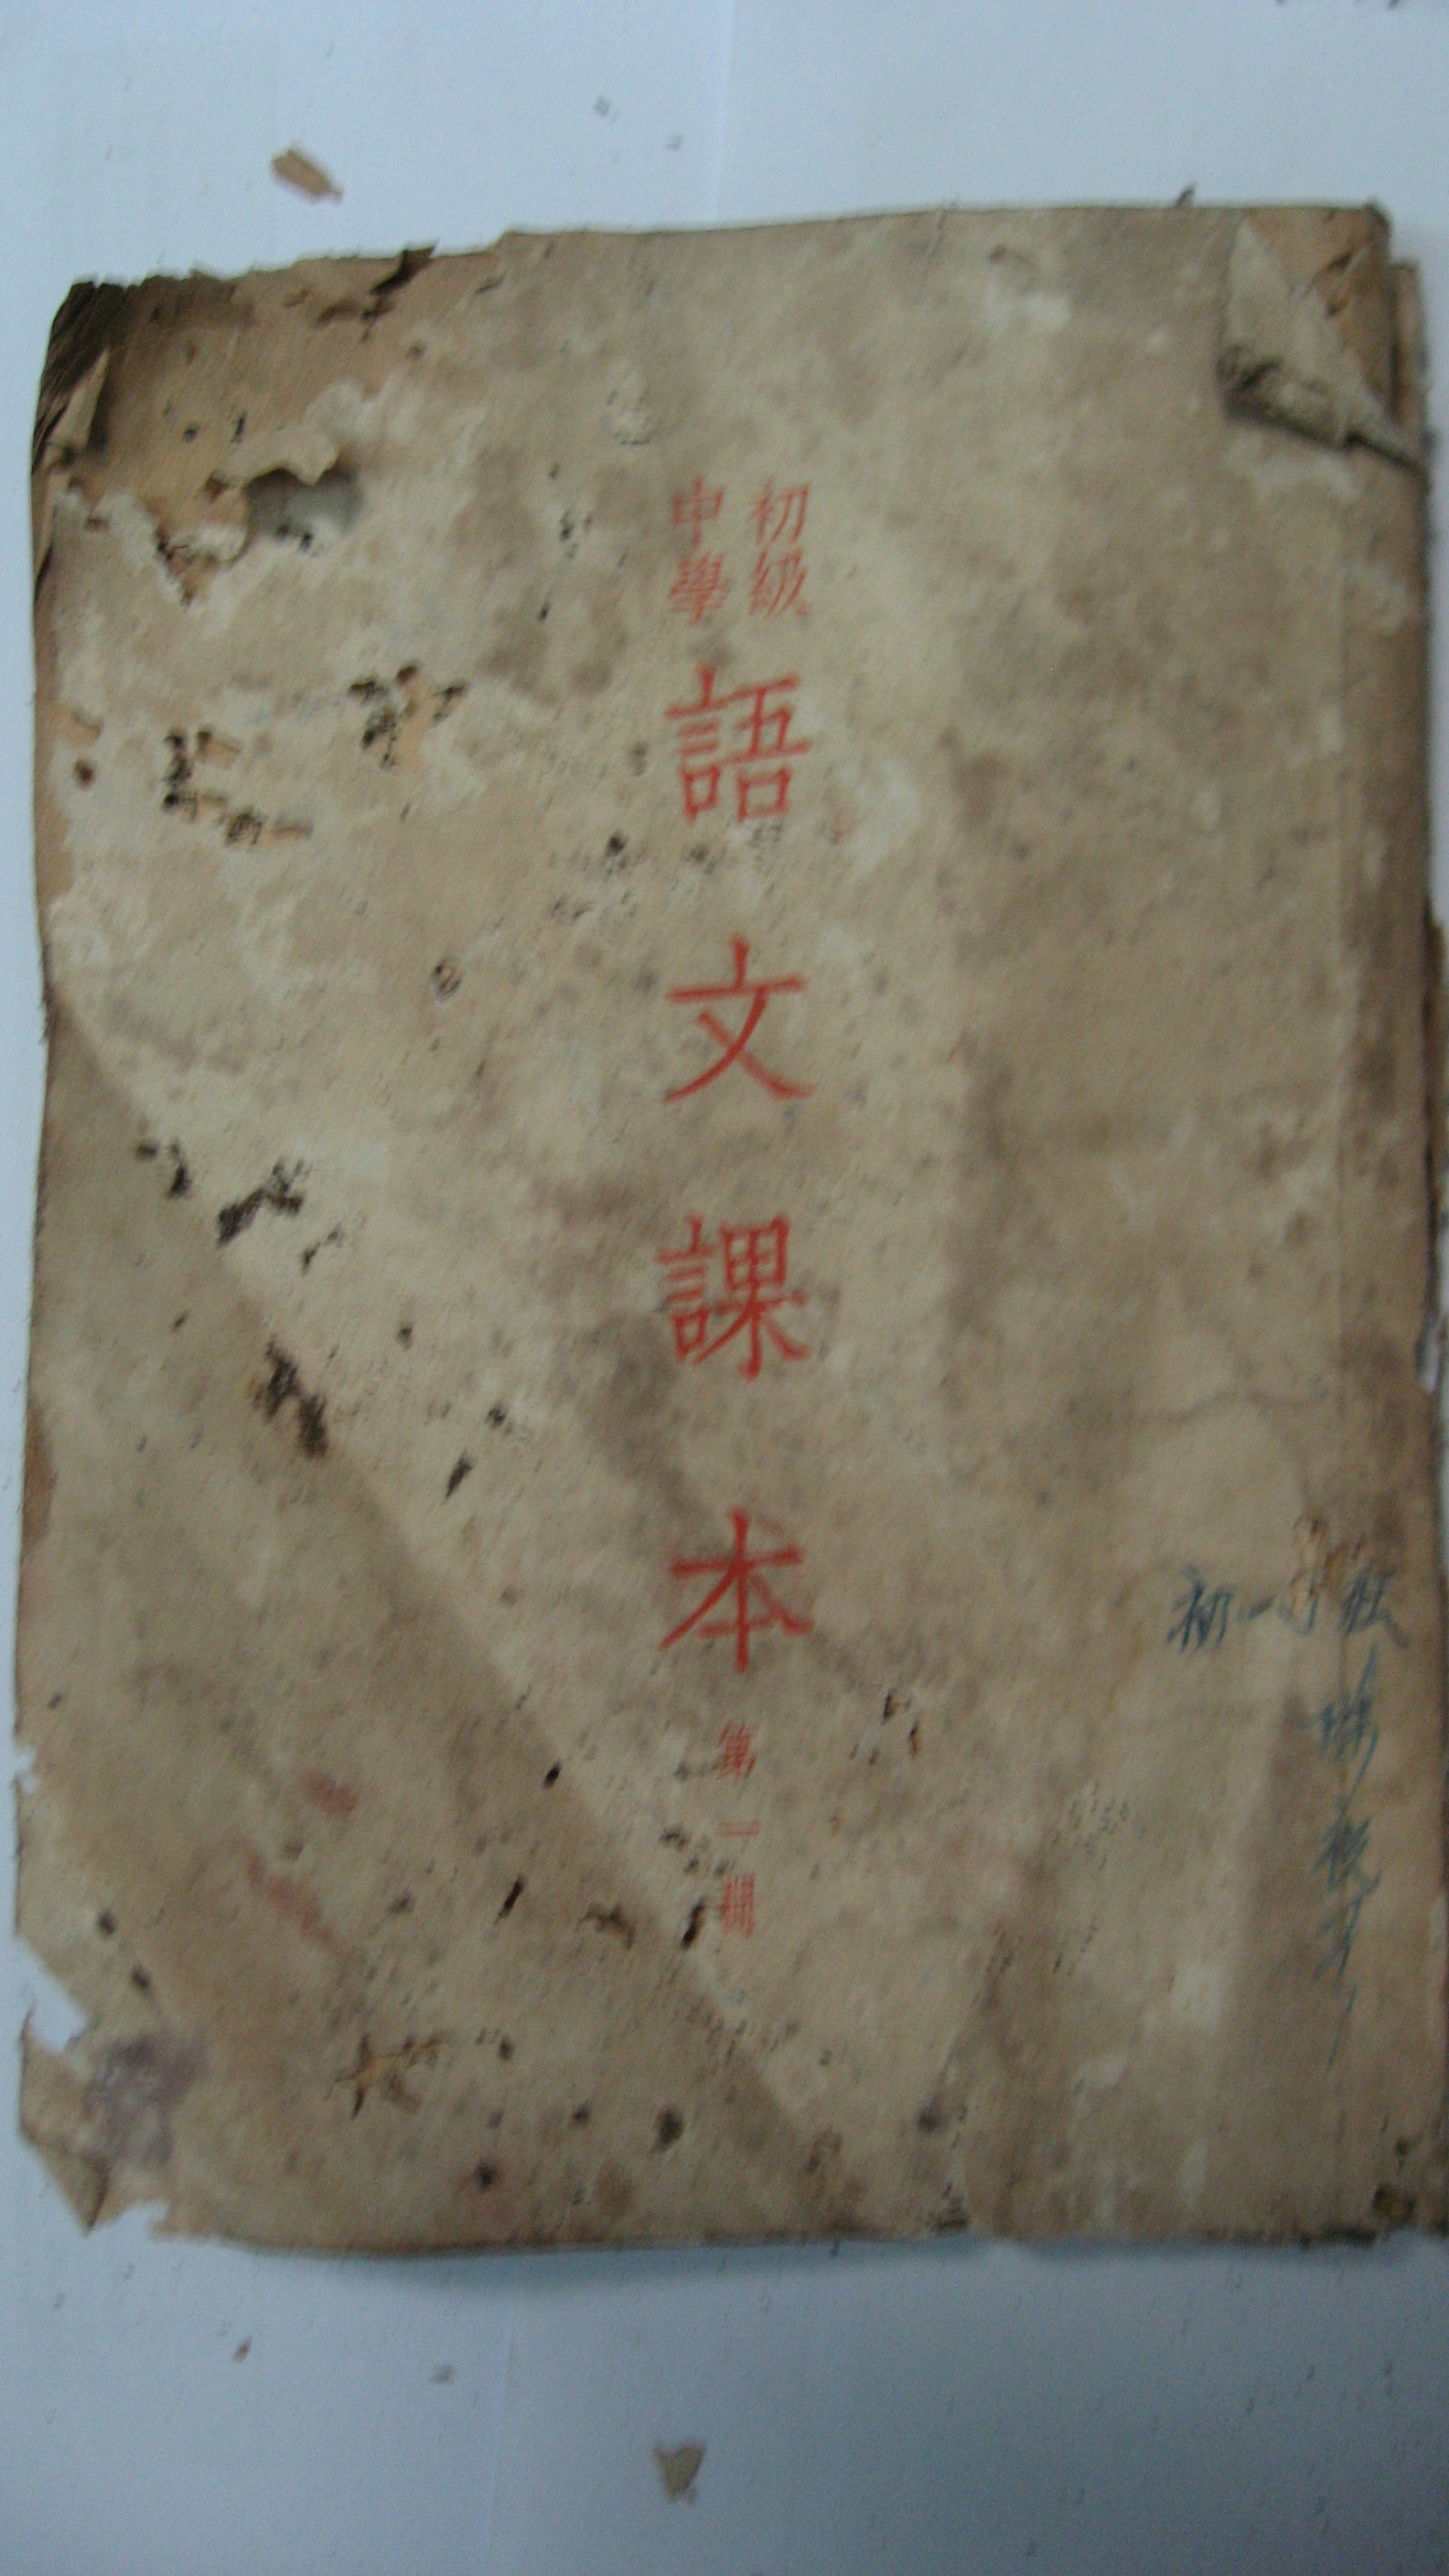 初級
中學
語文課本
第一冊
初一